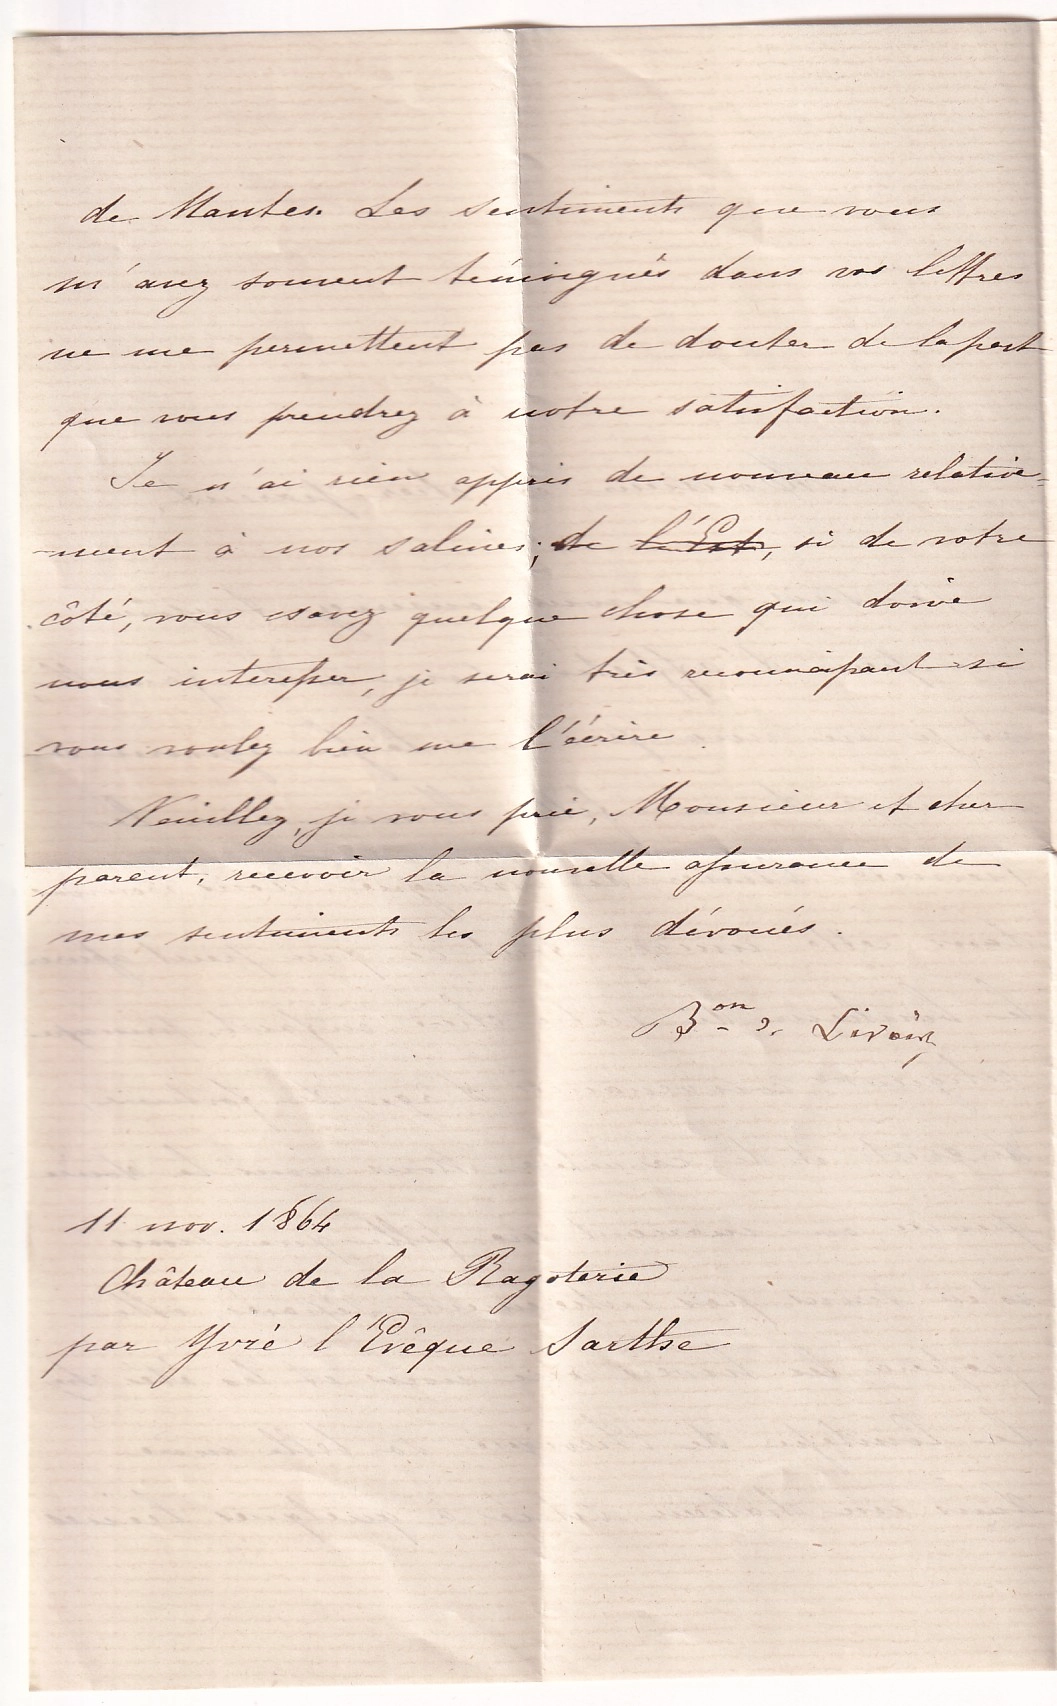 de Mantes. Les sentiments que vous
m'avez souvent témoignés dans vos lettres
ne me permettent pas de douter de la part
que vous prendrez à notre satisfaction.
Je n'ai rien appris de nouveau relative=
-ment à nos salines; de l'Est, si de votre
côté, vous savez quelque chose qui doive
nous interesser, je serai très reconnaissant si
vous voulez bien me l'écrire
Veuillez, je vous prie, Monsieur et cher
parent, recevoir la nouvelle assurance de
mes sentiments les plus dévoués.
Bon de
11 nov. 1864
Château de la Ragoterie
par Yvré l'Evêque Sarthe